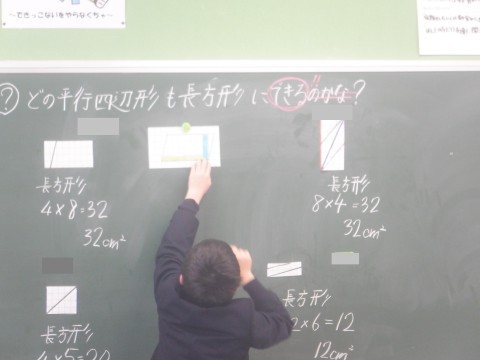 ～できっこないをやらなくちゃ～
? どの平行四辺形も長方形にできるのかな?
長方形
4×8=32
32cm²
長方形
8×4=32
32cm²
長方形
4×5=20
長方形
2×6=12
12cm²